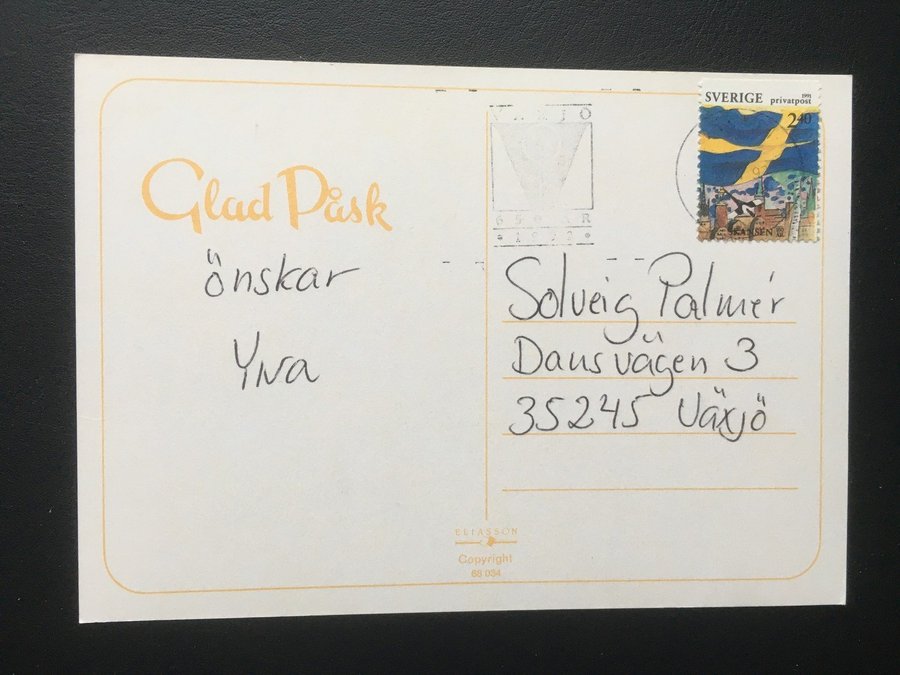 Glad Påsk
önskar
Ylva
VÄXJÖ
650 ÅR
* 1992 *
SVERIGE privatpost 1991
2 40
SKANSEN
Solveig Palmér
Dansvägen 3
35245 Växjö
ELIASSON
Copyright
68 034